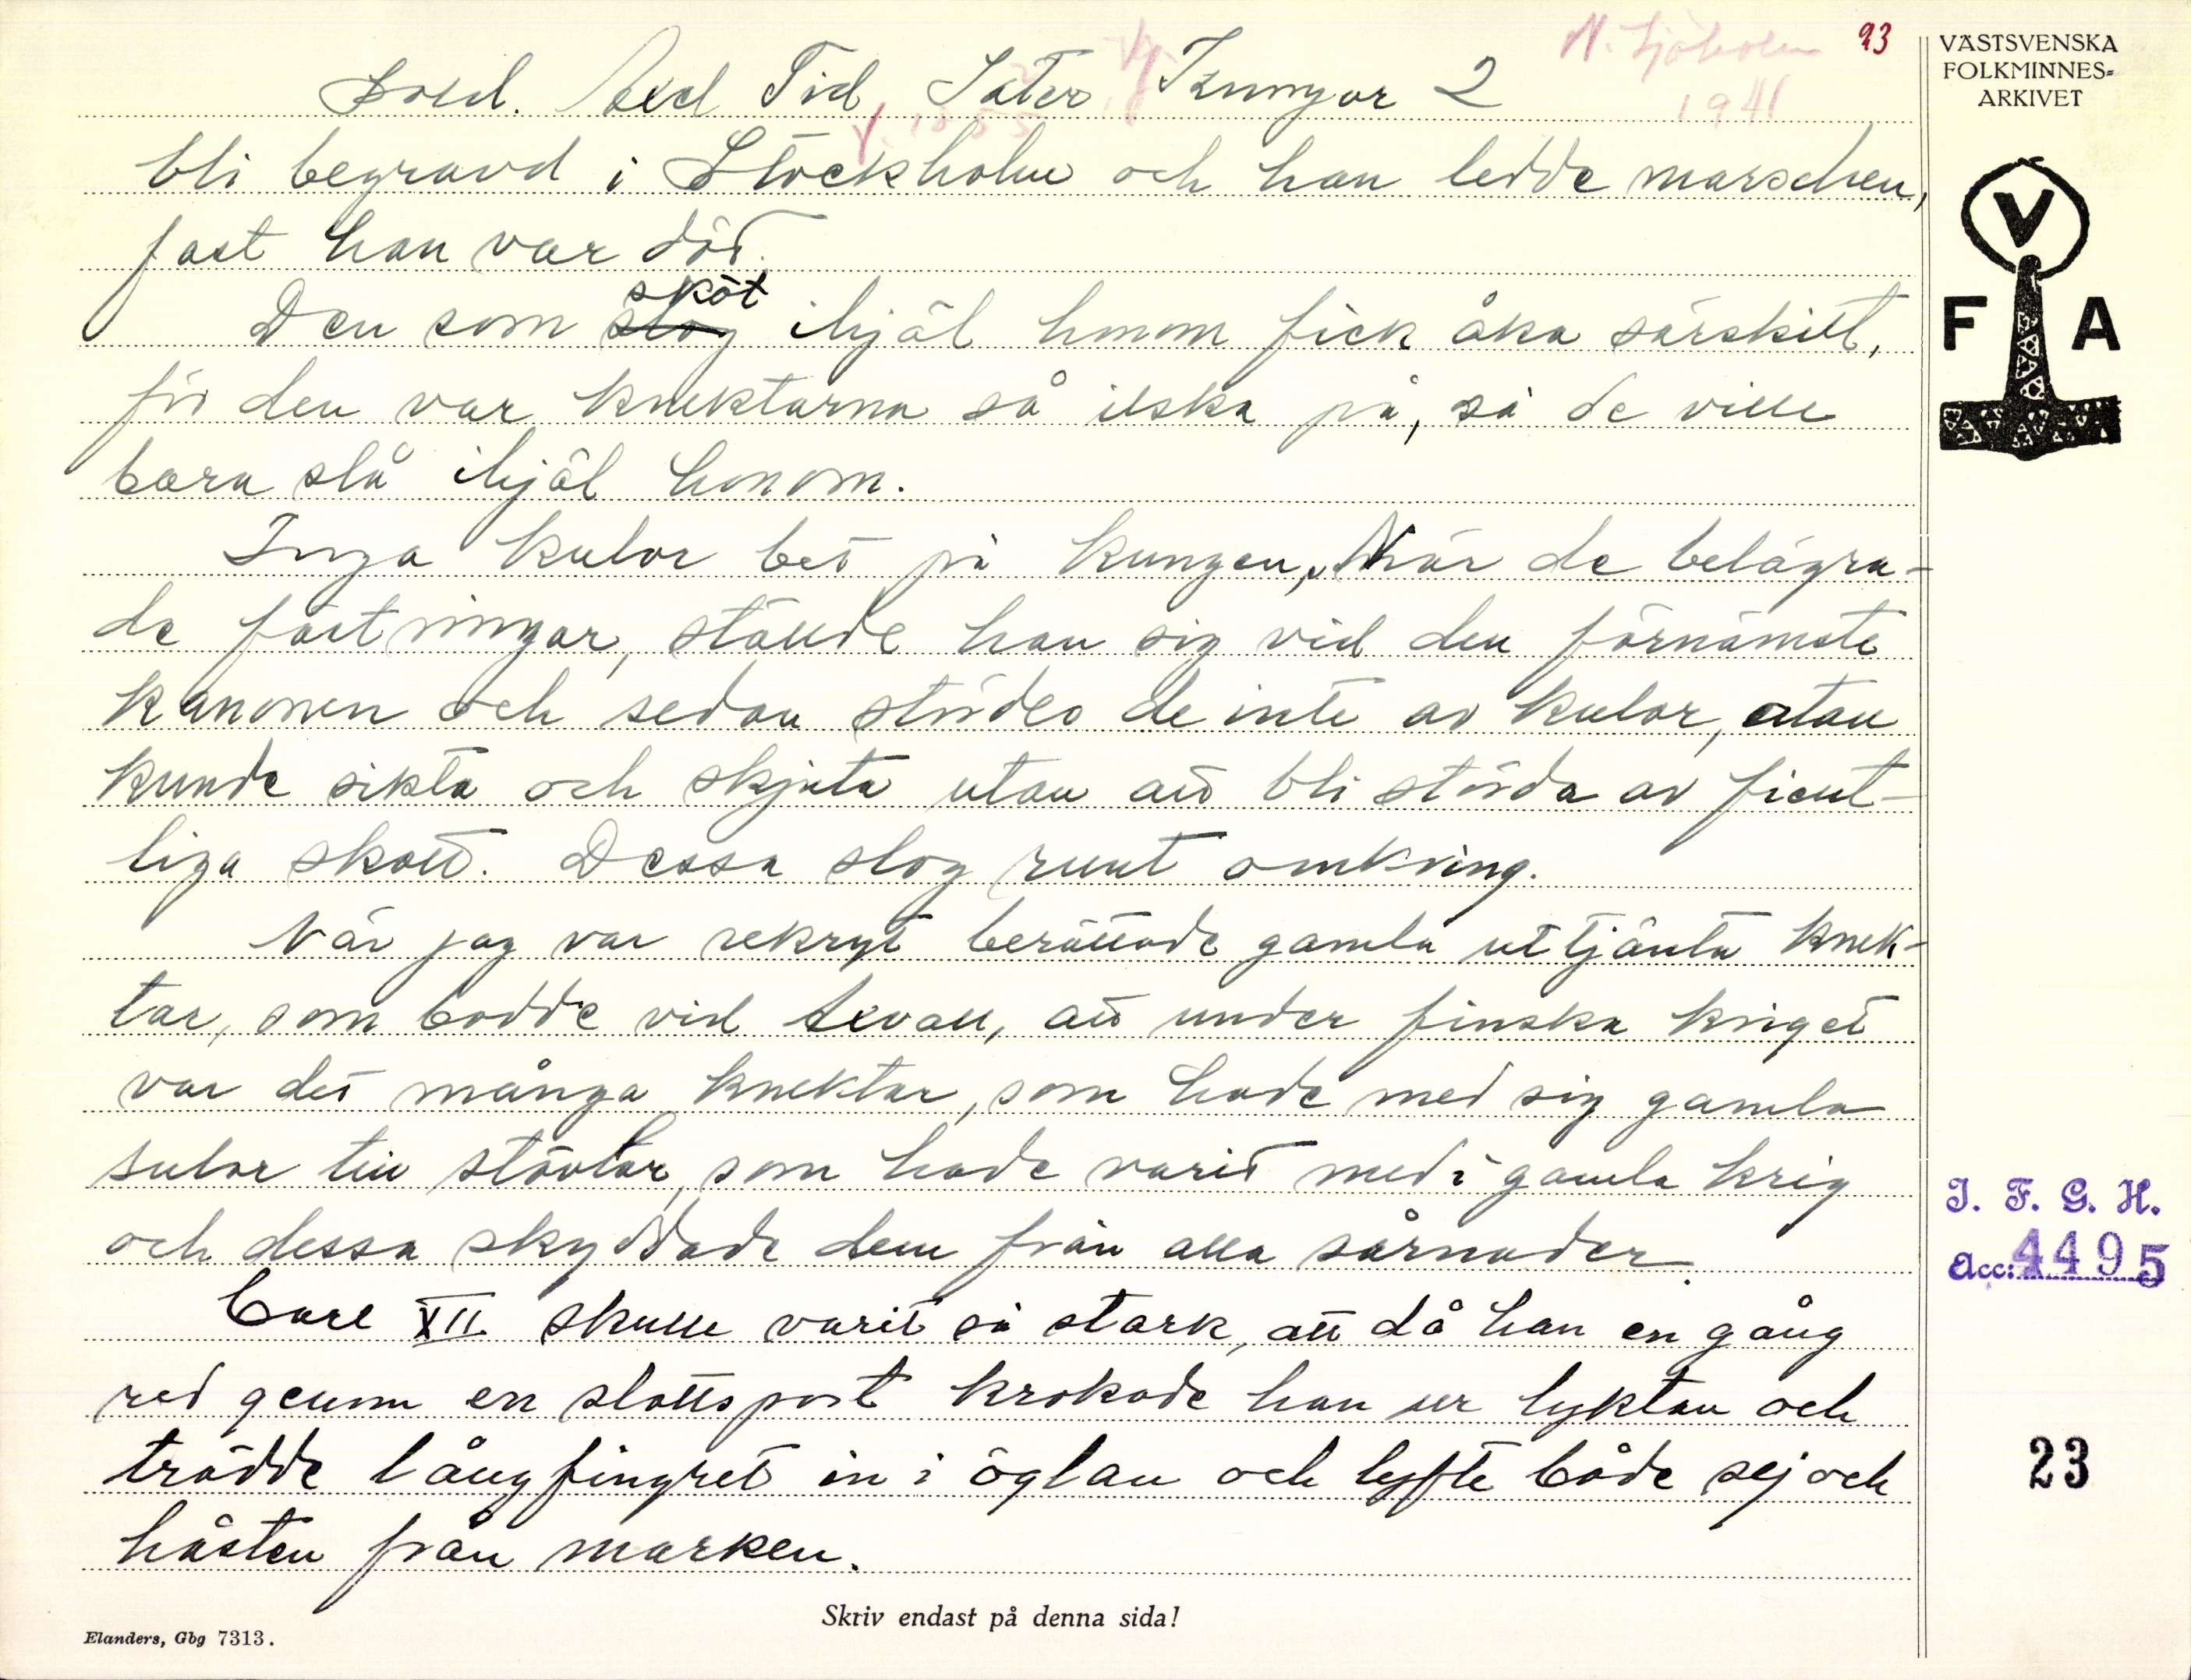 N. Sjöholm 93
1941
Sold. Axel Tid, Säter Kungar 2
f. 1855
bli begravd i Stockholm och han ledde marschen,
fast han var död.
sköt
Den som slog ihjäl honom fick åka särskilt,
för den var knektarna så ilska på, så de ville
bara slå ihjäl honom.
Inga kulor bet på kungen, När de belägra-
de fästningar, ställde han sig vid den förnämste
kanonen och sedan stördes de inte av kulor, utan
kunde sikta och skjuta utan att bli störda av fient-
liga skott. Dessa slog runt omkring.
När jag var rekryt berättade gamla uttjänta knek-
tar, som bodde vid Axvall, att under finska kriget
var det många knektar, som hade med sig gamla
sulor till stövlar, som hade varit med i gamla krig
och dessa skyddade dem från alla sårnader.
Carl XII skulle varit så stark, att då han en gång
red genom en slottsport krokade han ur lyktan och
trädde långfingret in i öglan och lyfte både sej och
hästen från marken.
Skriv endast på denna sida!
Elanders, Gbg 7313.
VÄSTSVENSKA
FOLKMINNES-
ARKIVET
V
F A
I. F. G. H.
Acc: 4495
23